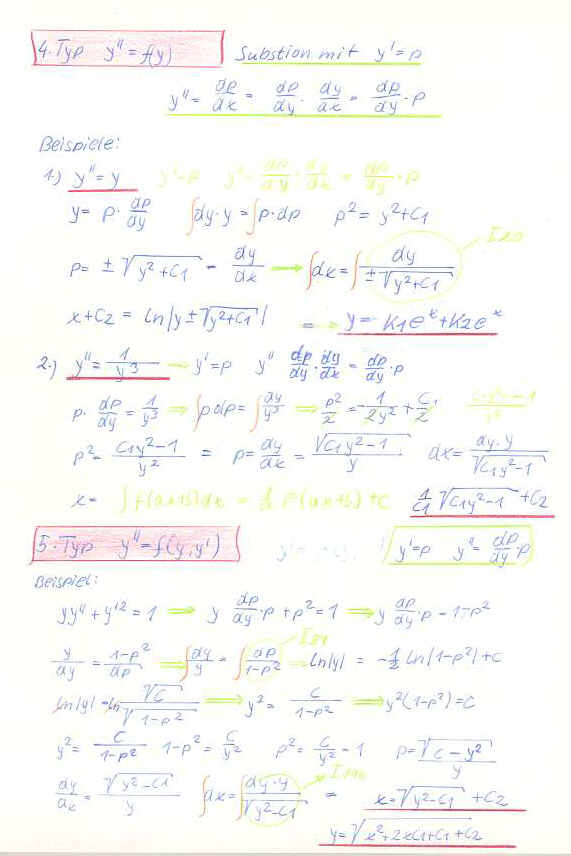 4. Typ y'' = f(y) Substion mit y' = p
y'' = dp/dx = dp/dy · dy/dx = dp/dy · p
Beispiele:
1.) y'' = y y' = p y'' = dp/dy · dy/dx = dp/dy · p
y = p · dp/dy ∫dy·y = ∫p·dp p² = y² + C1
p = ± √(y² + C1) = dy/dx → ∫dx = ∫ dy/(±√(y² + C1))
x + C2 = ln|y ± √(y² + C1)| ⇒ y = K1e^x + K2e^x
2.) y'' = 1/y³ → y' = p y'' dp/dy · dy/dx = dp/dy · p
p · dp/dy = 1/y³ ⇒ ∫p dp = ∫dy/y³ ⇒ p²/2 = -1/2y² + C1/2
p² = (C1y² - 1)/y² = p = dy/dx = √(C1y² - 1)/y dx = dy·y/√(C1y² - 1)
x = ∫f(ax+b)dx = 1/a F(ax+b) + C 1/C1 √(C1y² - 1) + C2
5. Typ y'' = f(y, y') y' = p y'' = dp/dy · p
Beispiel:
yy'' + y'² = 1 ⇒ y dp/dy · p + p² = 1 ⇒ y dp/dy · p = 1 - p²
y/dy = 1-p²/dp ⇒ ∫dy/y = ∫dp/1-p² ⇒ ln|y| = -1/2 ln|1-p²| + C
ln|y| = ln √C/√(1-p²) ⇒ y² = C/1-p² ⇒ y²(1-p²) = C
y² = C/1-p² 1-p² = C/y² p² = C/y² - 1 p = √(C - y²)/y
dy/dx = √(y² - C1)/y ∫dx = ∫dy·y/√(y² - C1) = x = √(y² - C1) + C2
y = √(x² + 2xC1 + C1 + C2)